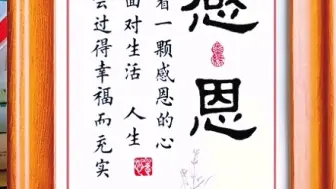 感恩
着一颗感恩的心
面对生活 人生
会过得幸福而充实